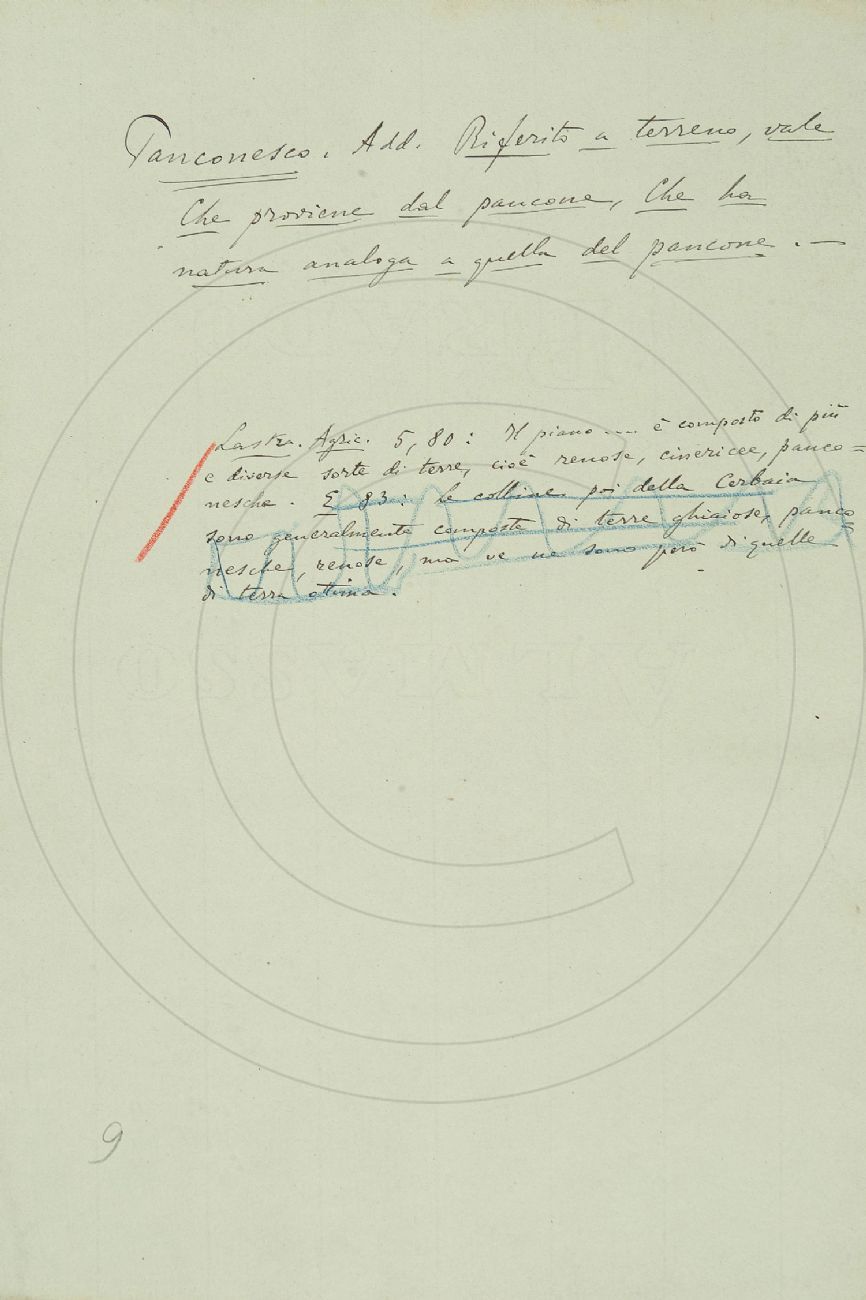 Panconesco. Add. Riferito a terreno, vale
Che proviene dal pancone, Che ha
natura analoga a quella del pancone. —
Lastr. Agric. 5, 80: Il piano .... è composto di più
e diverse sorte di terre, cioè renose, cinericee, panco=
nesche. E 83: Le colline poi della Cerbaia
sono generalmente composte di terre ghiaiose, panco
nesche, renose, ma ve ne sono però di quelle
di terra ottima.
9